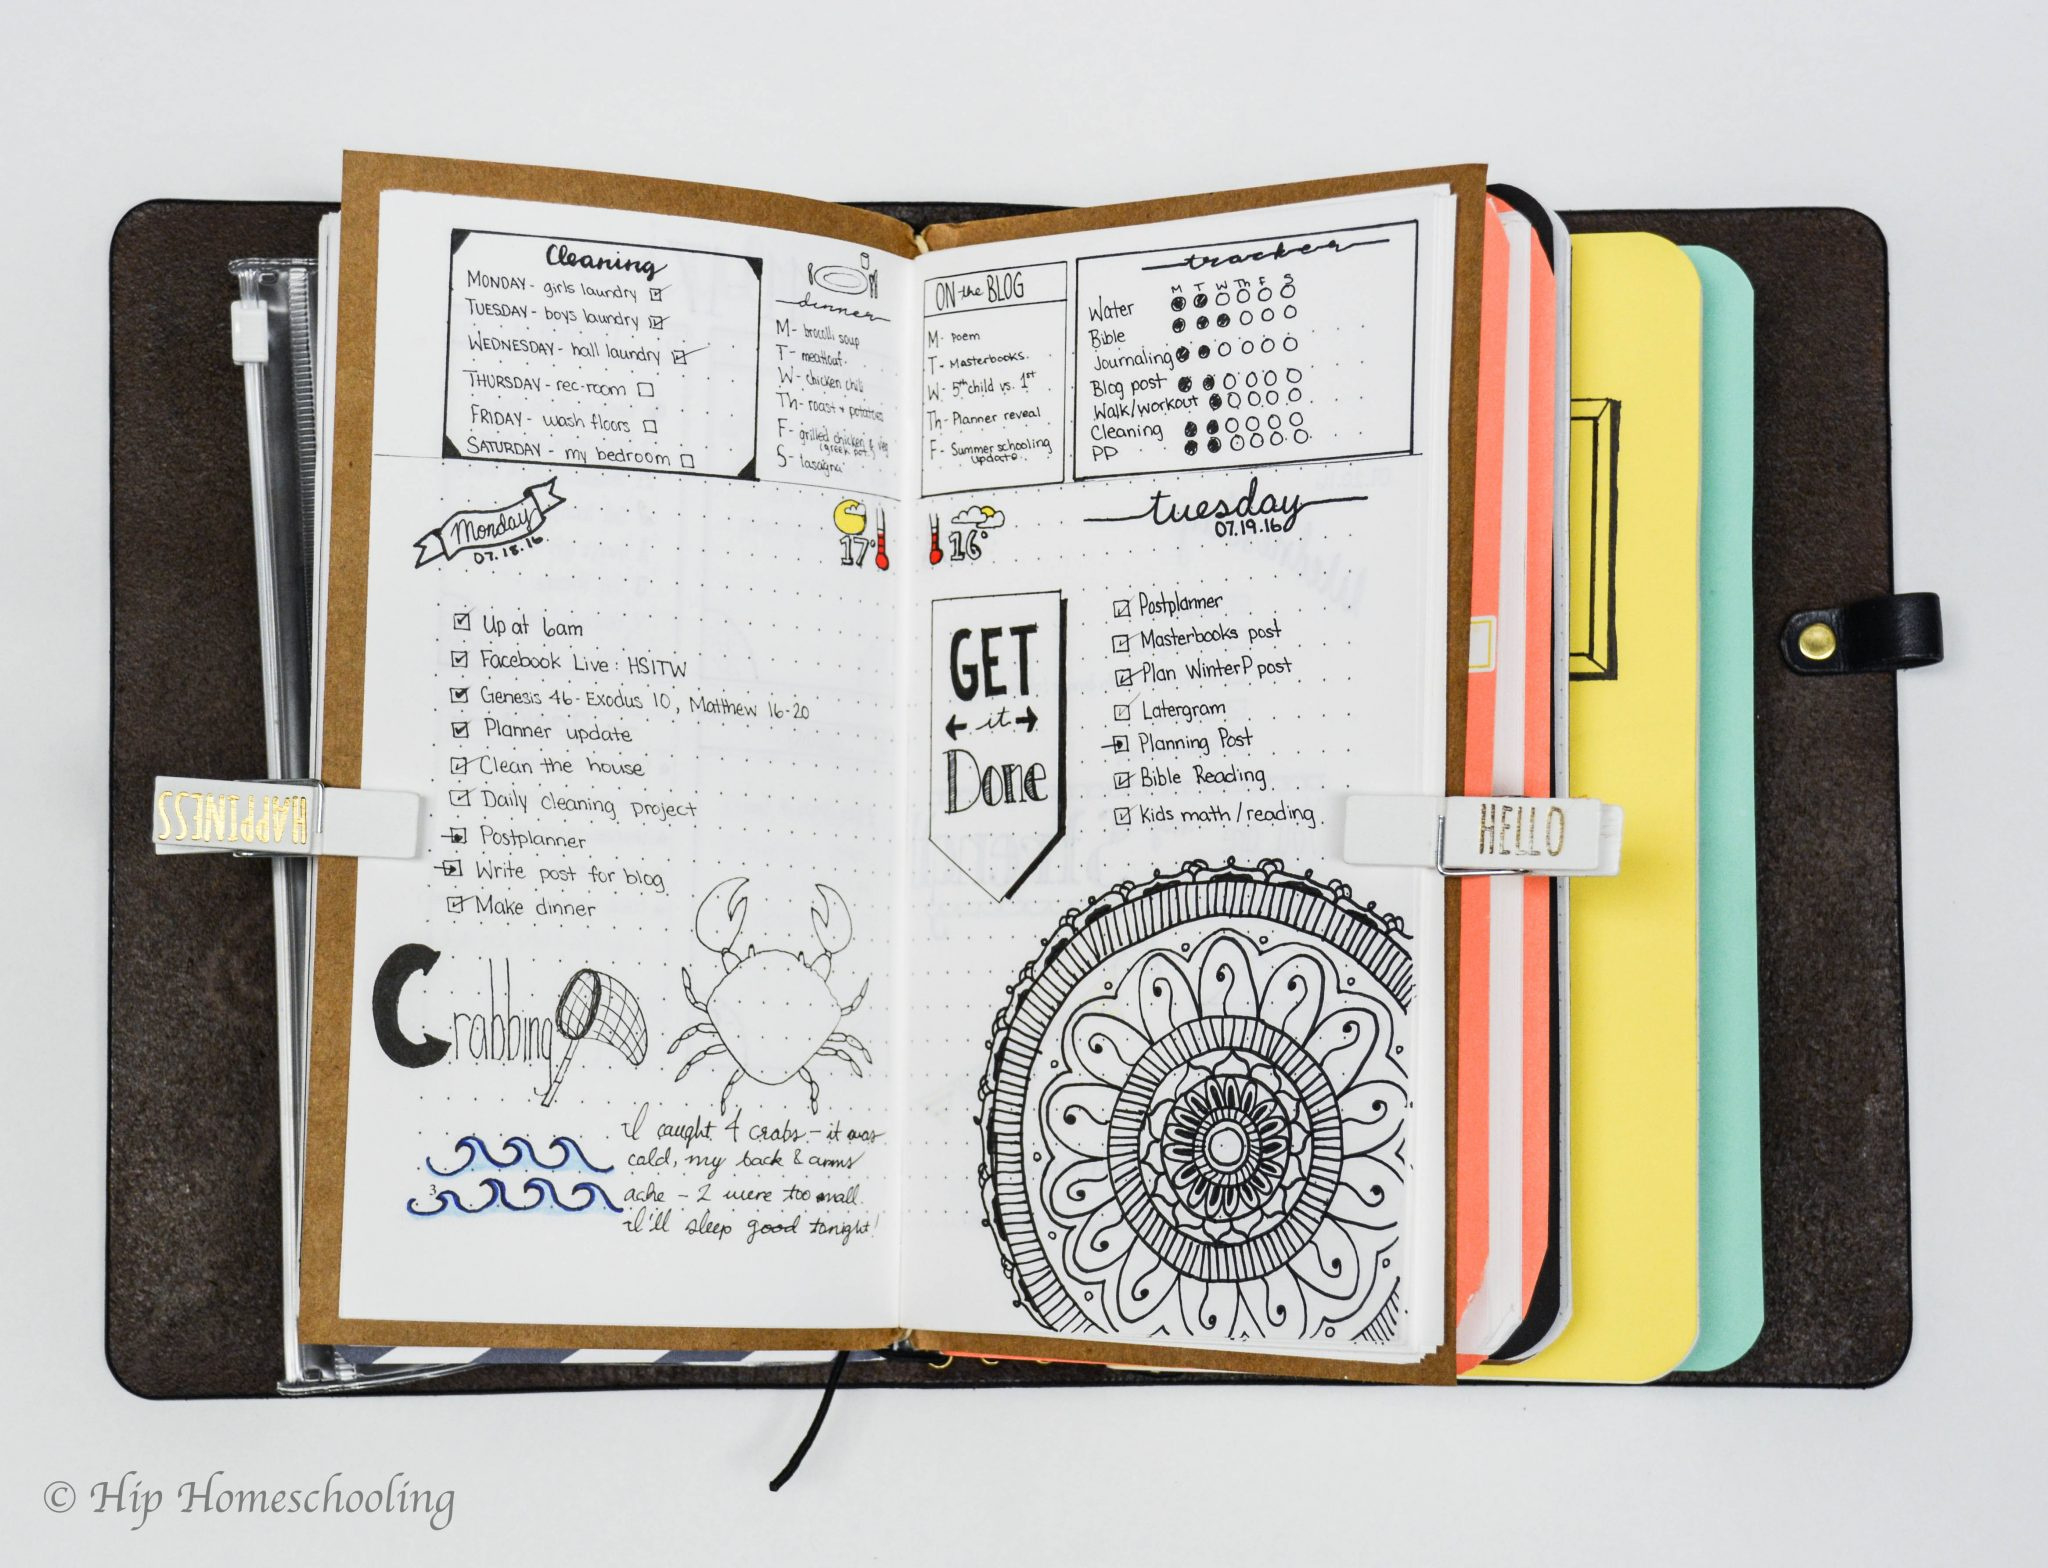 Cleaning
MONDAY - girls laundry
TUESDAY - boys laundry
WEDNESDAY - hall laundry
THURSDAY - rec-room
FRIDAY - wash floors
SATURDAY - my bedroom
dinner
M - brocolli soup
T - meatloaf
W - chicken chili
Th - roast + potatoes
F - grilled chicken & veg
(greek pot.)
S - lasagna
ON the BLOG
M - poem
T - Masterbooks
W - 5th child vs. 1st
Th - Planner reveal
F - Summer schooling
update
tracker
M T W Th F S
Water
Bible
Journaling
Blog post
Walk/workout
Cleaning
PP
Monday
07.18.16
17°
Up at 6am
Facebook Live: HSITW
Genesis 46 - Exodus 10, Matthew 16-20
Planner update
Clean the house
Daily cleaning project
Postplanner
Write post for blog
Make dinner
Crabbing
I caught 4 crabs - it was
cold, my back & arms
ache - 2 were too small.
I'll sleep good tonight!
16°
tuesday
07.19.16
GET
it
Done
Postplanner
Masterbooks post
Plan WinterP post
Latergram
Planning Post
Bible Reading
Kids math/reading
HAPPINESS
HELLO
© Hip Homeschooling